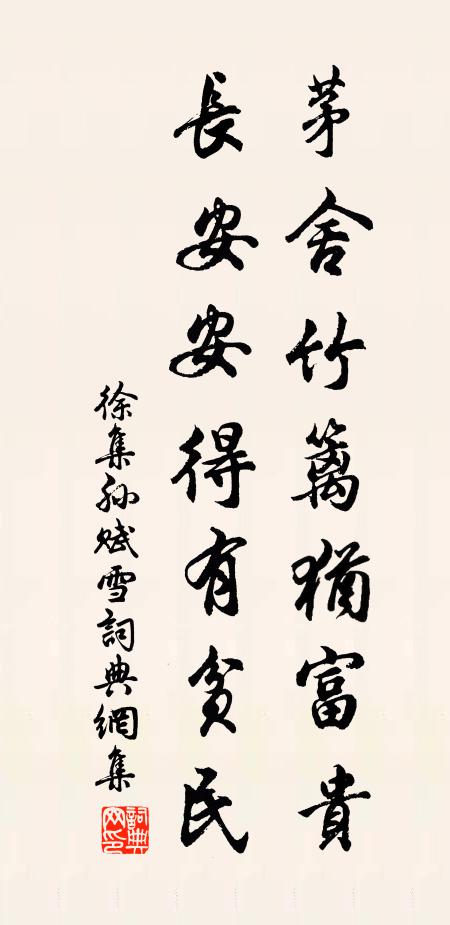 茅舍竹籬猶富貴
長安安得有貧民
徐集孙賦雪詞典網集
詞典网印